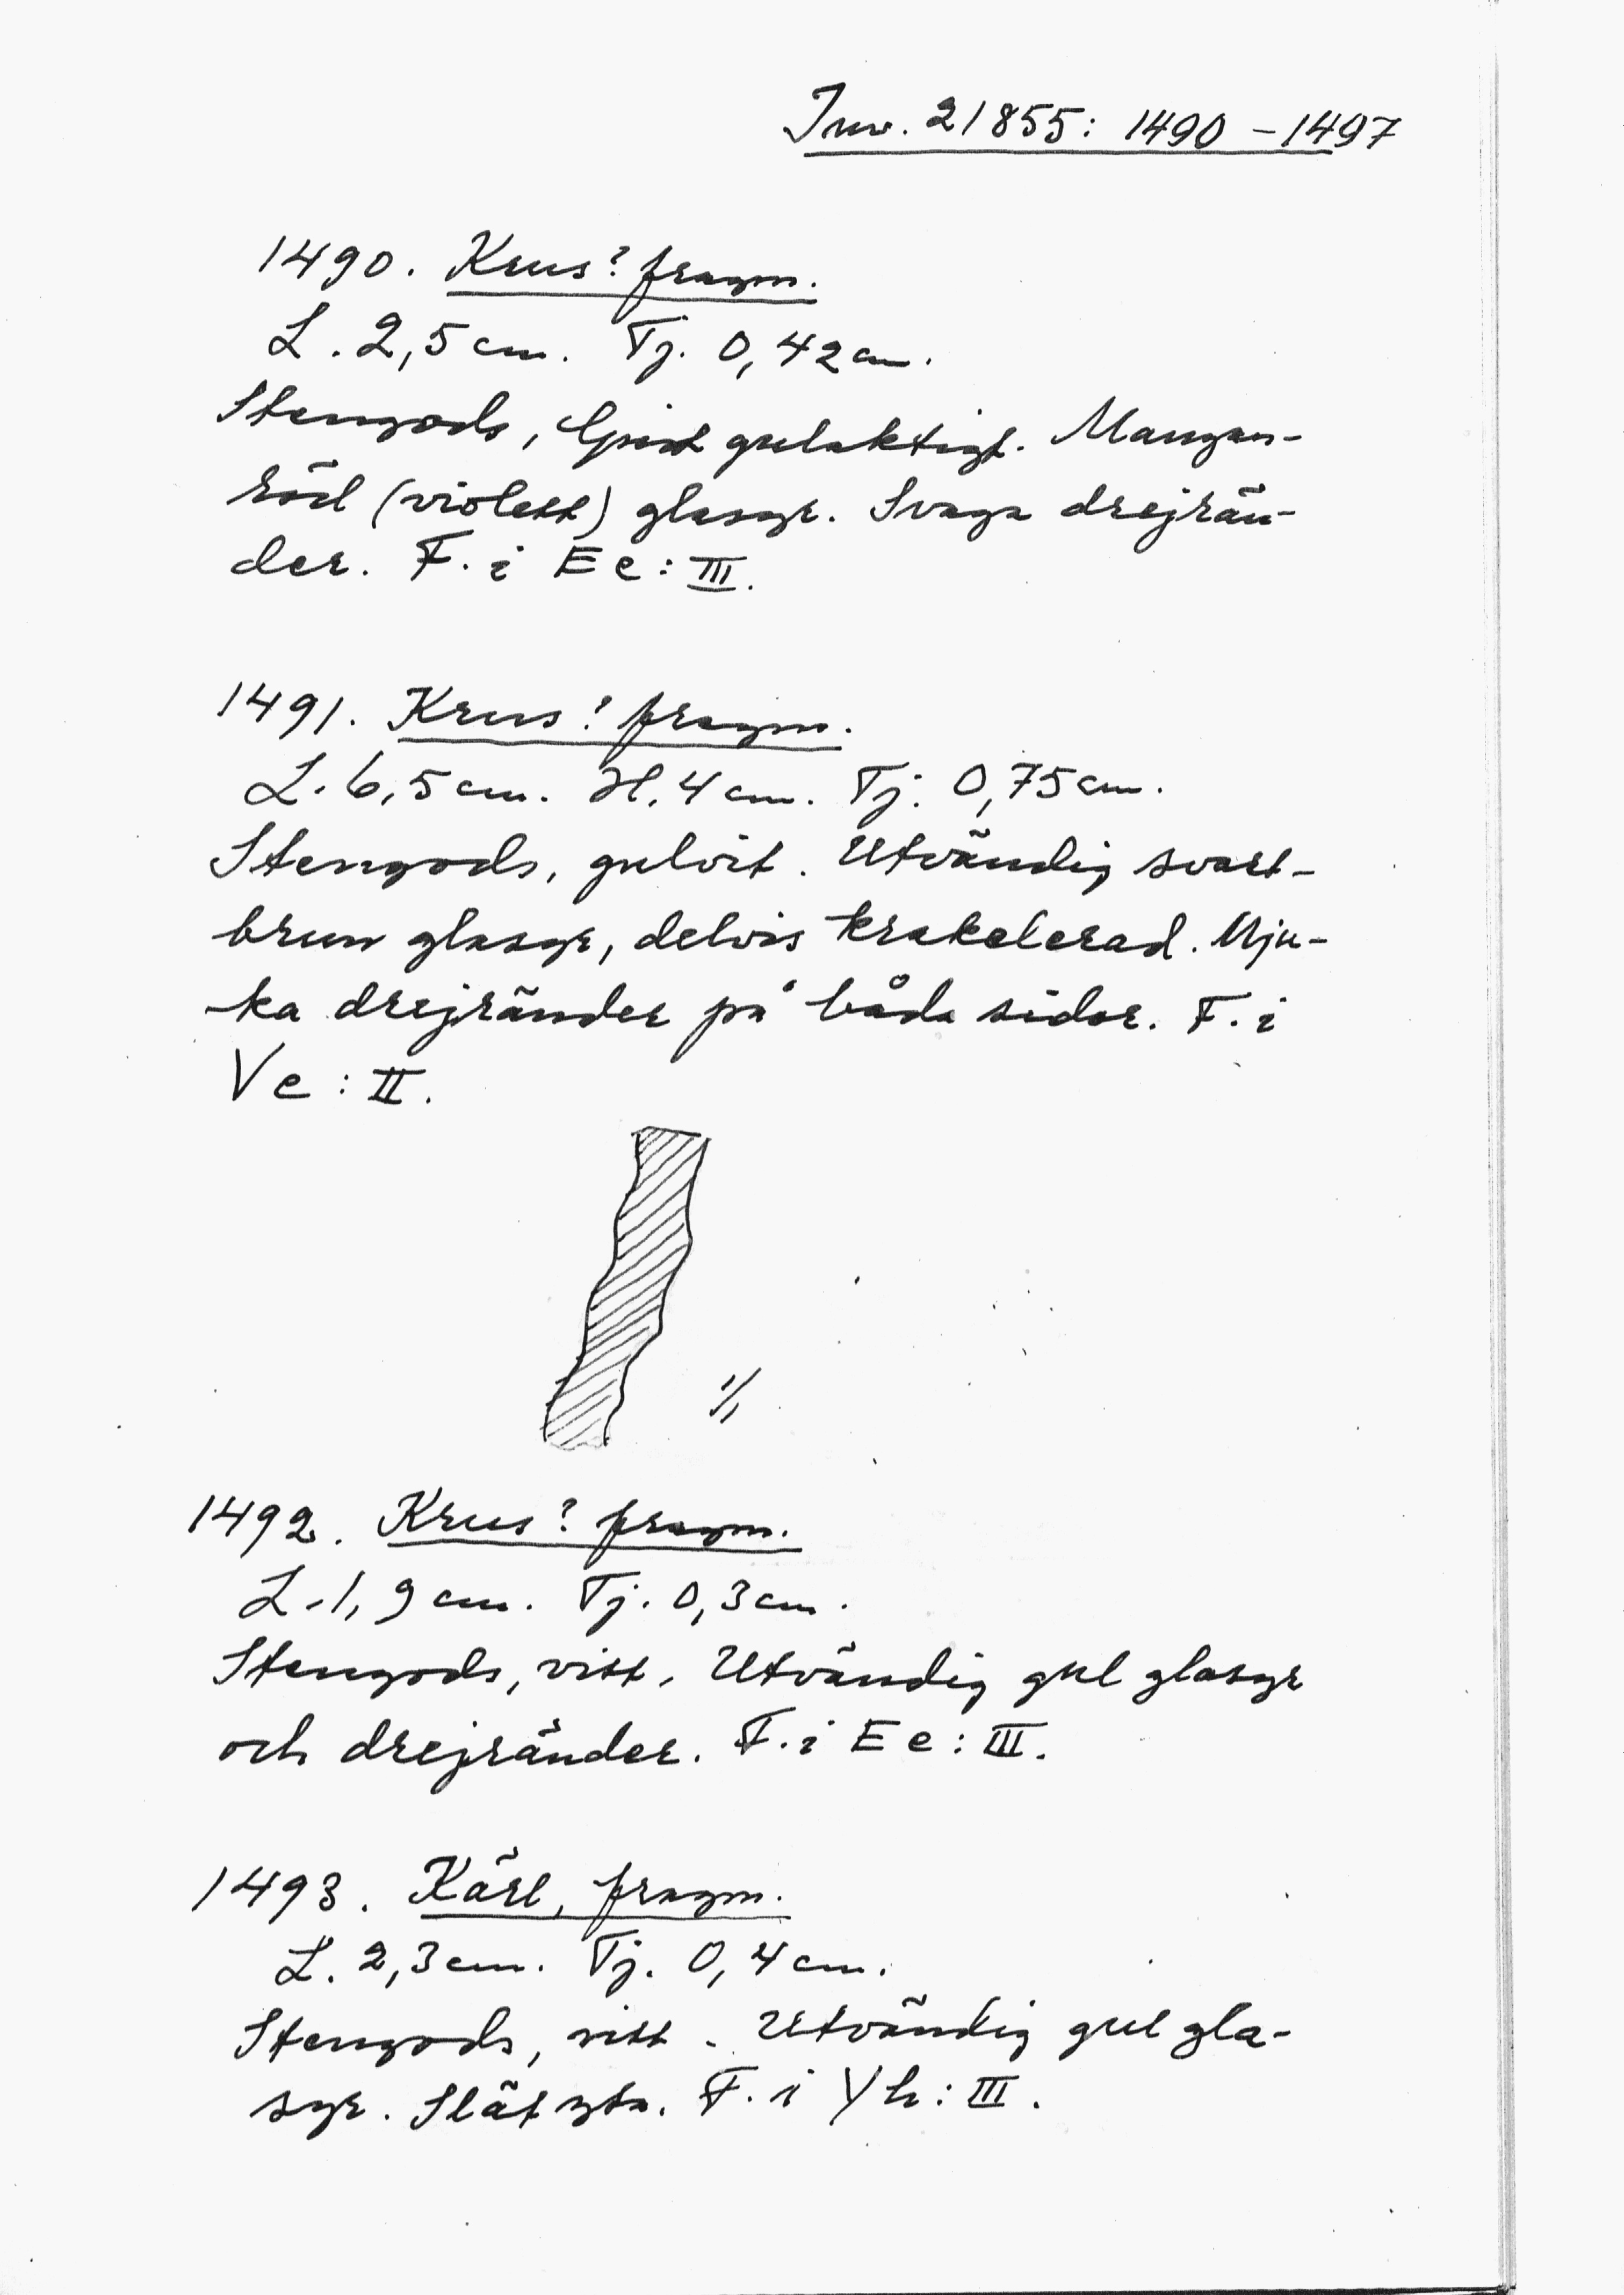 Inv. 21855: 1490 – 1497
1490. Krus? fragm.
L. 2,5 cm. Tj. 0,42 cm.
Stengods, ljust gulaktigt. Mangan-
röd (violett) glasyr. Svaga drejrän-
der. F. i Ee: III.
1491. Krus? fragm.
L. 6,5 cm. H. 4 cm. Tj. 0,75 cm.
Stengods, gulvit. Utvändig svart-
brun glasyr, delvis krakelerad. Mju-
ka drejränder på båda sidor. F. i
Ve: II.
1/1
1492. Krus? fragm.
L. 1,9 cm. Tj. 0,3 cm.
Stengods, vitt. Utvändig gul glasyr
och drejränder. F. i Ee: III.
1493. Kärl, fragm.
L. 2,3 cm. Tj. 0,4 cm.
Stengods, vitt. Utvändig gul gla-
syr. Slät yta. F. i Yh: III.